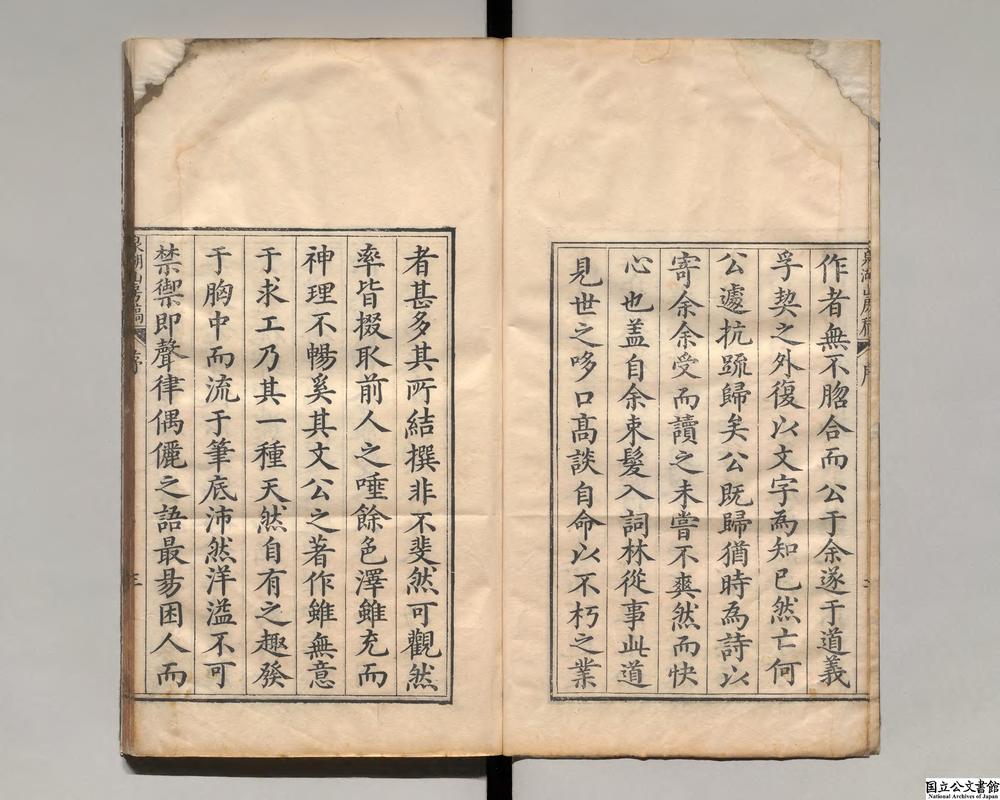 作者無不脗合而公于余遂于道義
孚契之外復以文字為知已然亡何
公遽抗疏歸矣公既歸猶時為詩以
寄余余受而讀之未嘗不爽然而快
心也盖自余束髮入詞林從事此道
見世之哆口高談自命以不朽之業
者甚多其所結撰非不斐然可觀然
率皆掇取前人之唾餘色澤雖充而
神理不暢奚其文公之著作雖無意
于求工乃其一種天然自有之趣發
于胸中而流于筆底沛然洋溢不可
禁禦即聲律偶儷之語最易困人而
泉湖山房稿
序
三
国立公文書館
National Archives of Japan